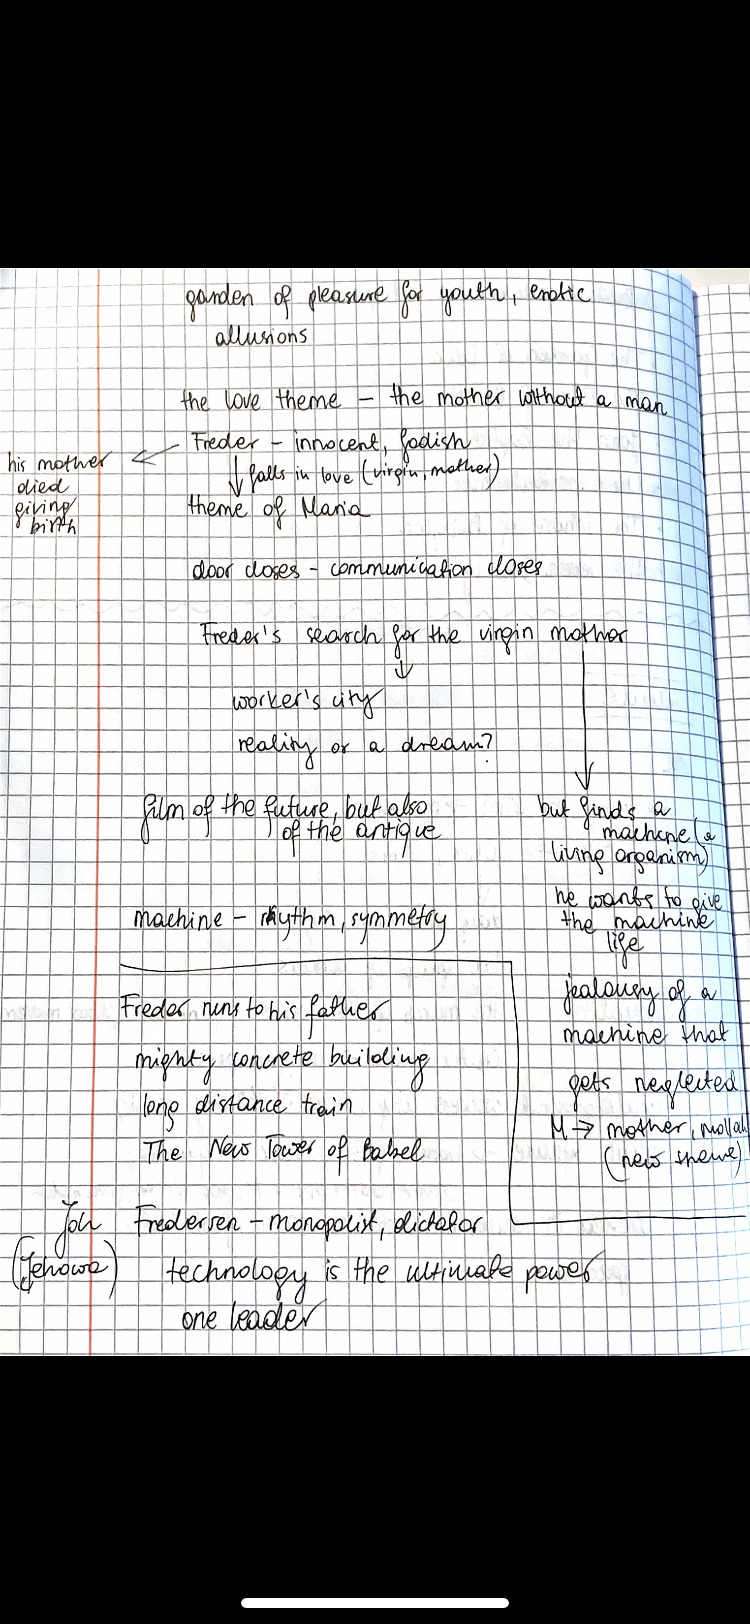 garden of pleasure for youth, erotic
allusions
the love theme – the mother without a man
Freder – innocent, fadish
his mother
died
giving
birth
falls in love (virgin, mother)
theme of Maria
door closes – communication closes
Freder's search for the virgin mother
worker's city
reality or a dream?
film of the future, but also
of the antique
but finds a
machine (a
living organism)
he wants to give
the machine
life
jealousy of a
machine that
gets neglected
M → mother, mollah
(new theme)
machine – rhythm, symmetry
Freder runs to his father
mighty concrete building
long distance train
The New Tower of Babel
Joh Fredersen – monopolist, dictator
(Jehowa)
technology is the ultimate power
one leader